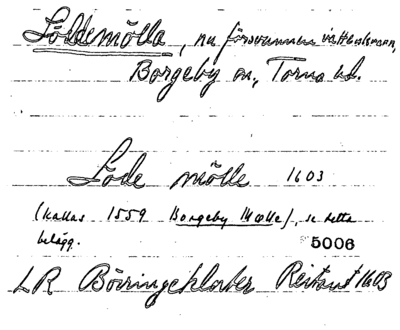 Löddemölla, nu försvunnen vattenkvarn,
Borgeby sn, Torna hd.
Löde mölle 1603
(kallas 1559 Borgeby Mølle), se detta
belägg.
5006
LR Börringekloster Restant 1603